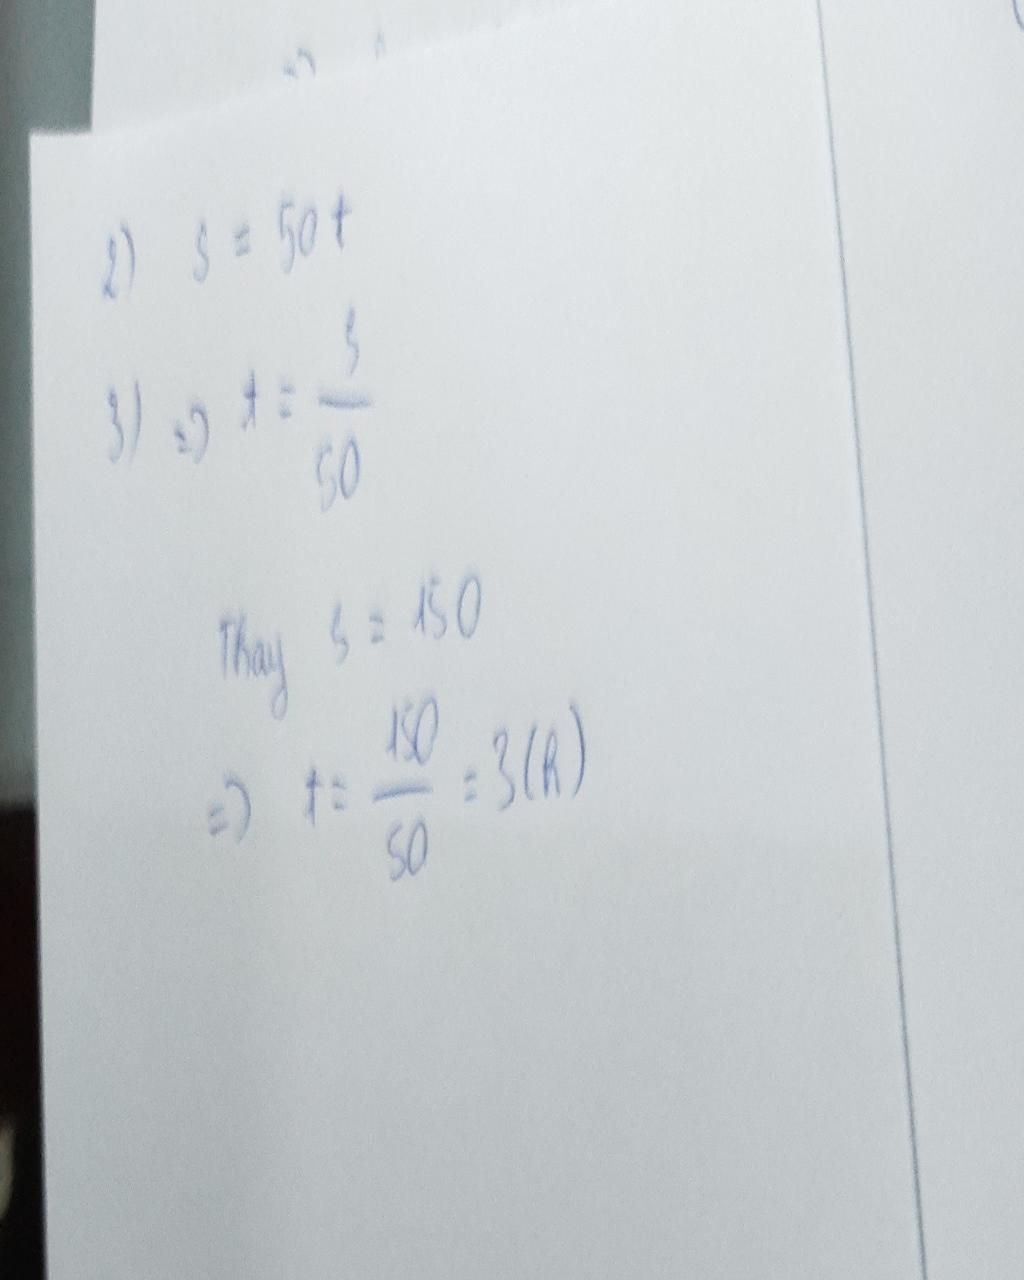 2) s = 50t
3) => t = s/50
Thay s = 150
=> t = 150/50 = 3 (h)